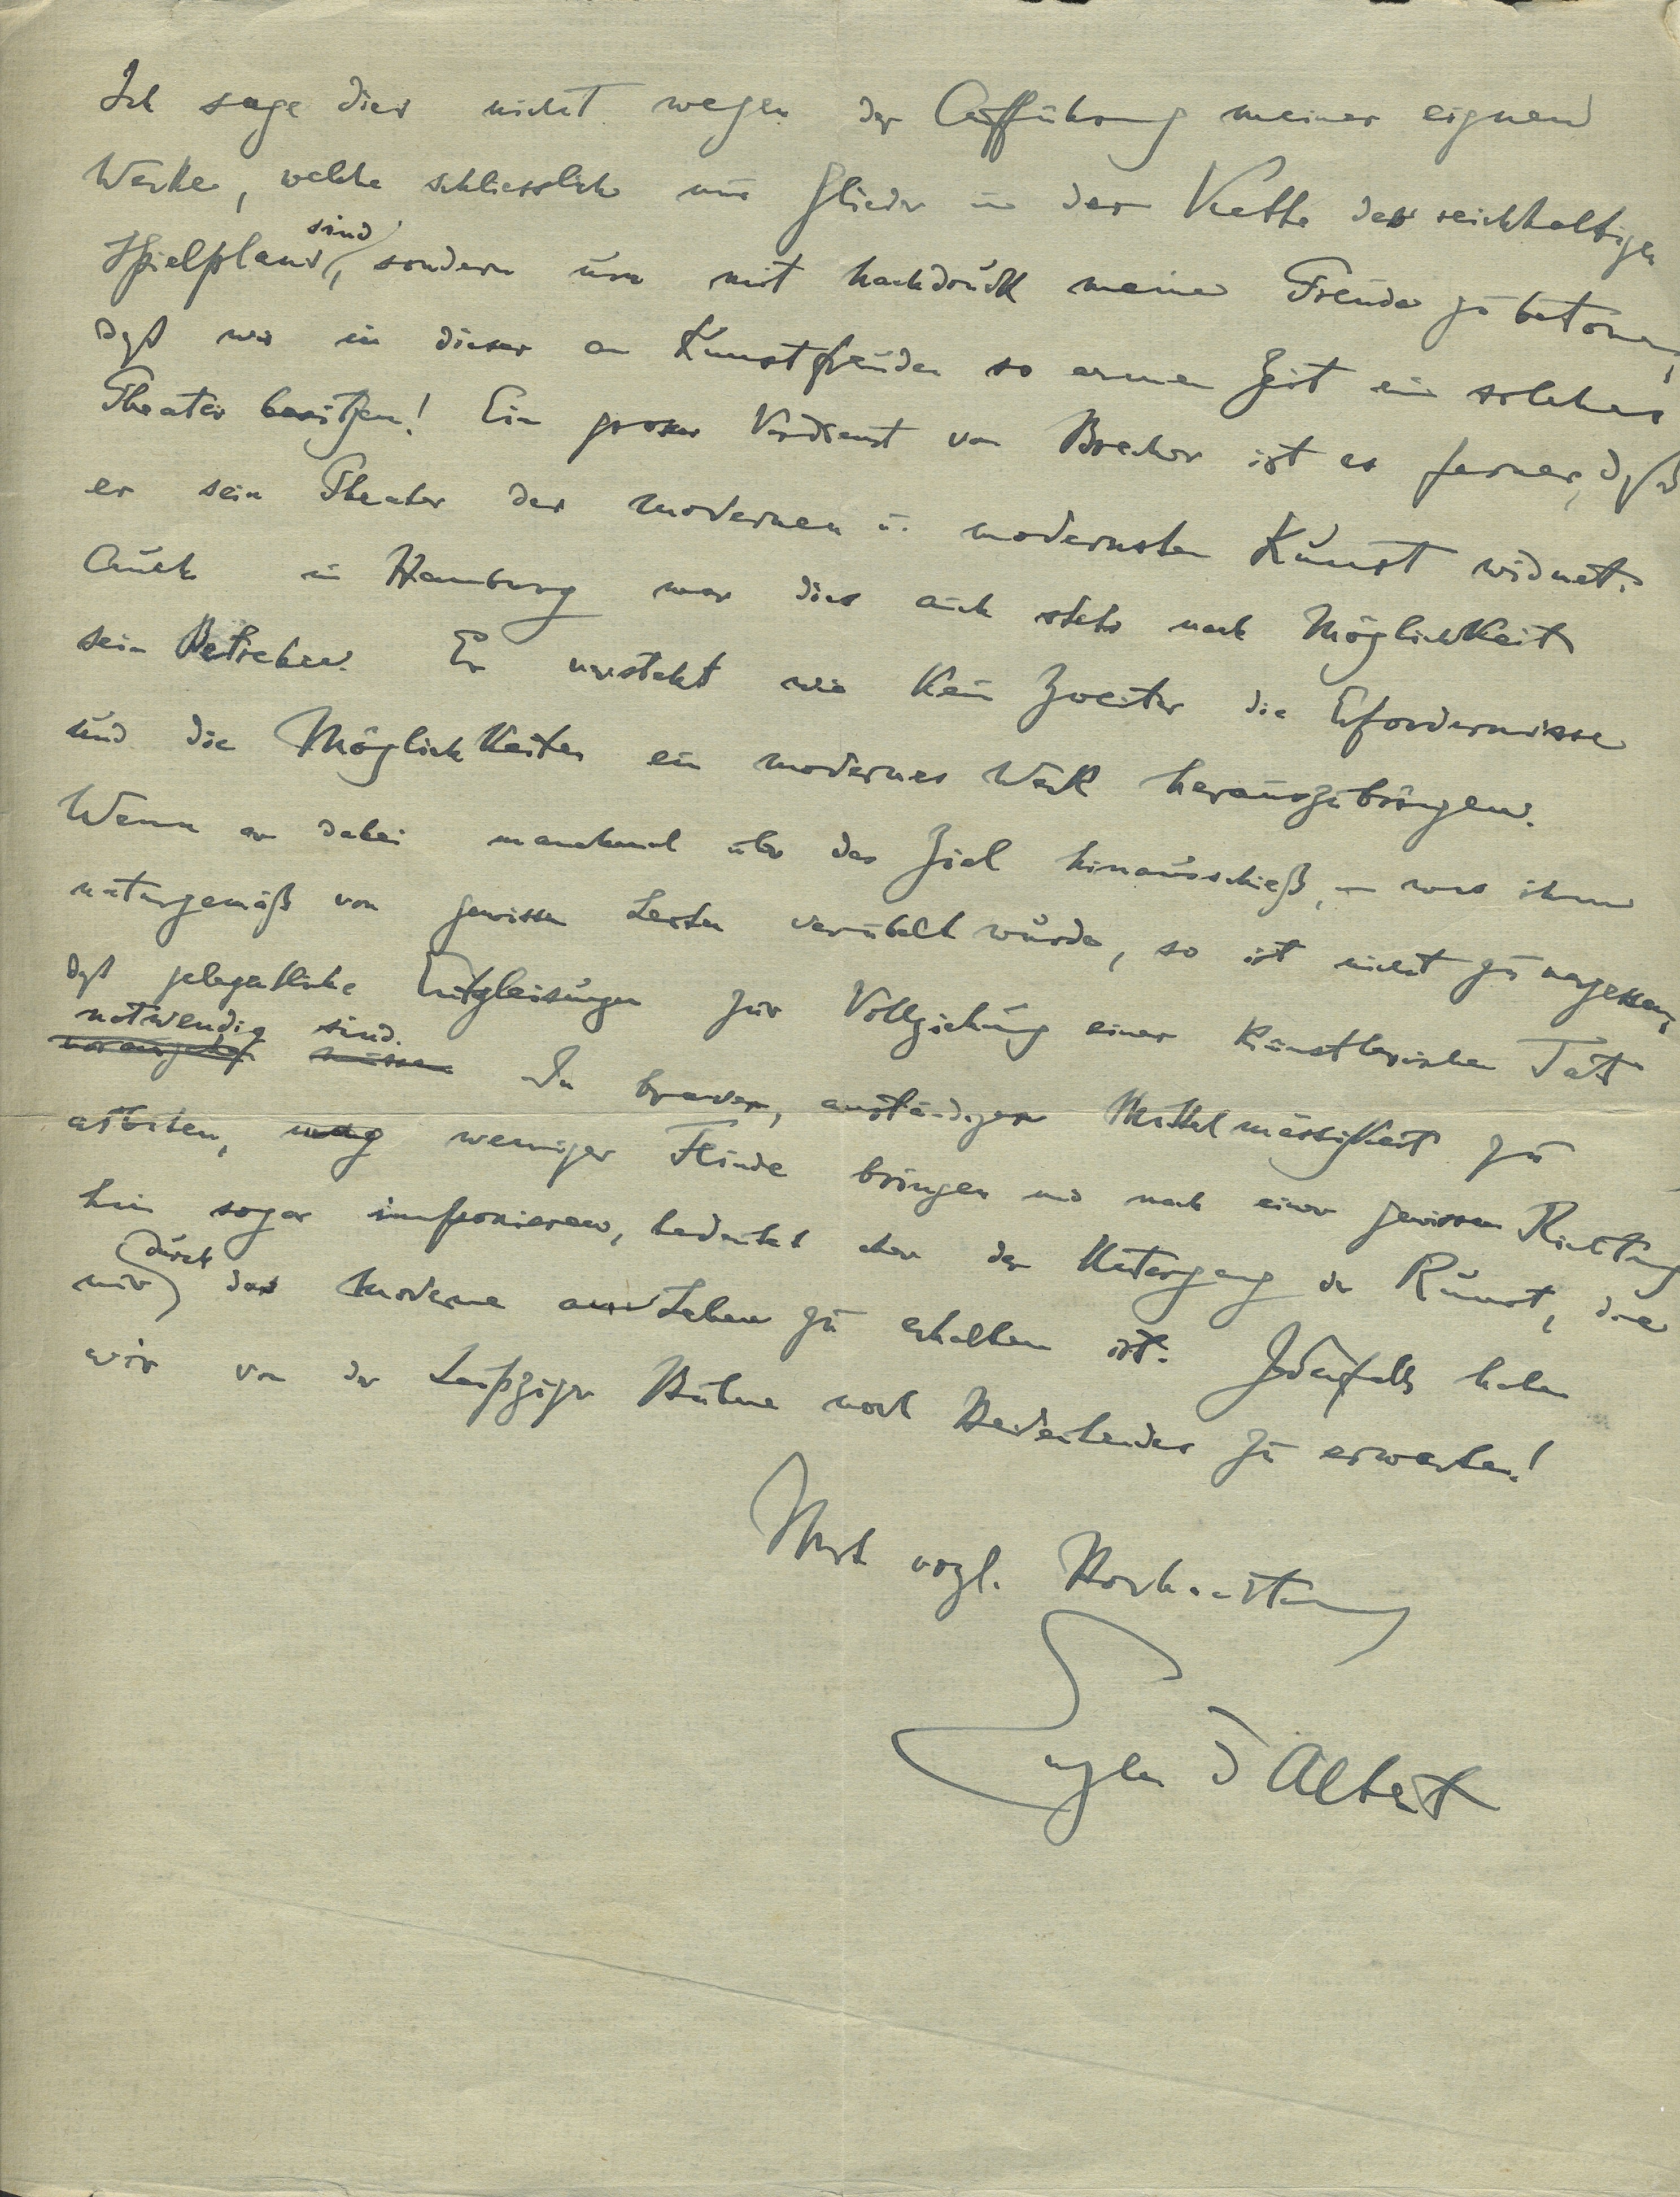 Ich sage dies nicht wegen der Aufführung meiner eignen
Werke, welche schliesslich nur Glieder in der Kette des reichhaltigen
Spielplans sind, sondern um mit Nachdruck meine Freude zu betonen,
daß wir in dieser an Kunstfreuden so armen Zeit ein solches
Theater besitzen! Ein grosses Verdienst von Brecher ist es ferner, daß
er sein Theater der modernen u. modernsten Kunst widmet.
Auch in Hamburg war dies auch stets nach Möglichkeit
sein Betreben. Er versteht wie kein Zweiter die Erfordernisse
und die Möglichkeiten ein modernes Werk herauszubringen.
Wenn er dabei manchmal über das Ziel hinausschieß, – was ihm
naturgemäß von gewissen Leuten verübelt wurde, so ist nicht zu vergessen,
daß gelegentliche Entgleisungen zur Vollziehung einer künstlerischen Tat
notwendig sind.
vorausgehen müssen In braver, anständiger Mittelmässigkeit zu
arbeiten, mag weniger Feinde bringen und nach einer gewissen Richtung
hin sogar imponieren, bedeutet aber den Untergang der Kunst, die
nur durch das Moderne am Leben zu erhalten ist. Jedenfalls haben
wir von der Leipziger Bühne noch Bedeutendes zu erwarten!
Mit vozgl. Hochachtung
Eugen d'Albert